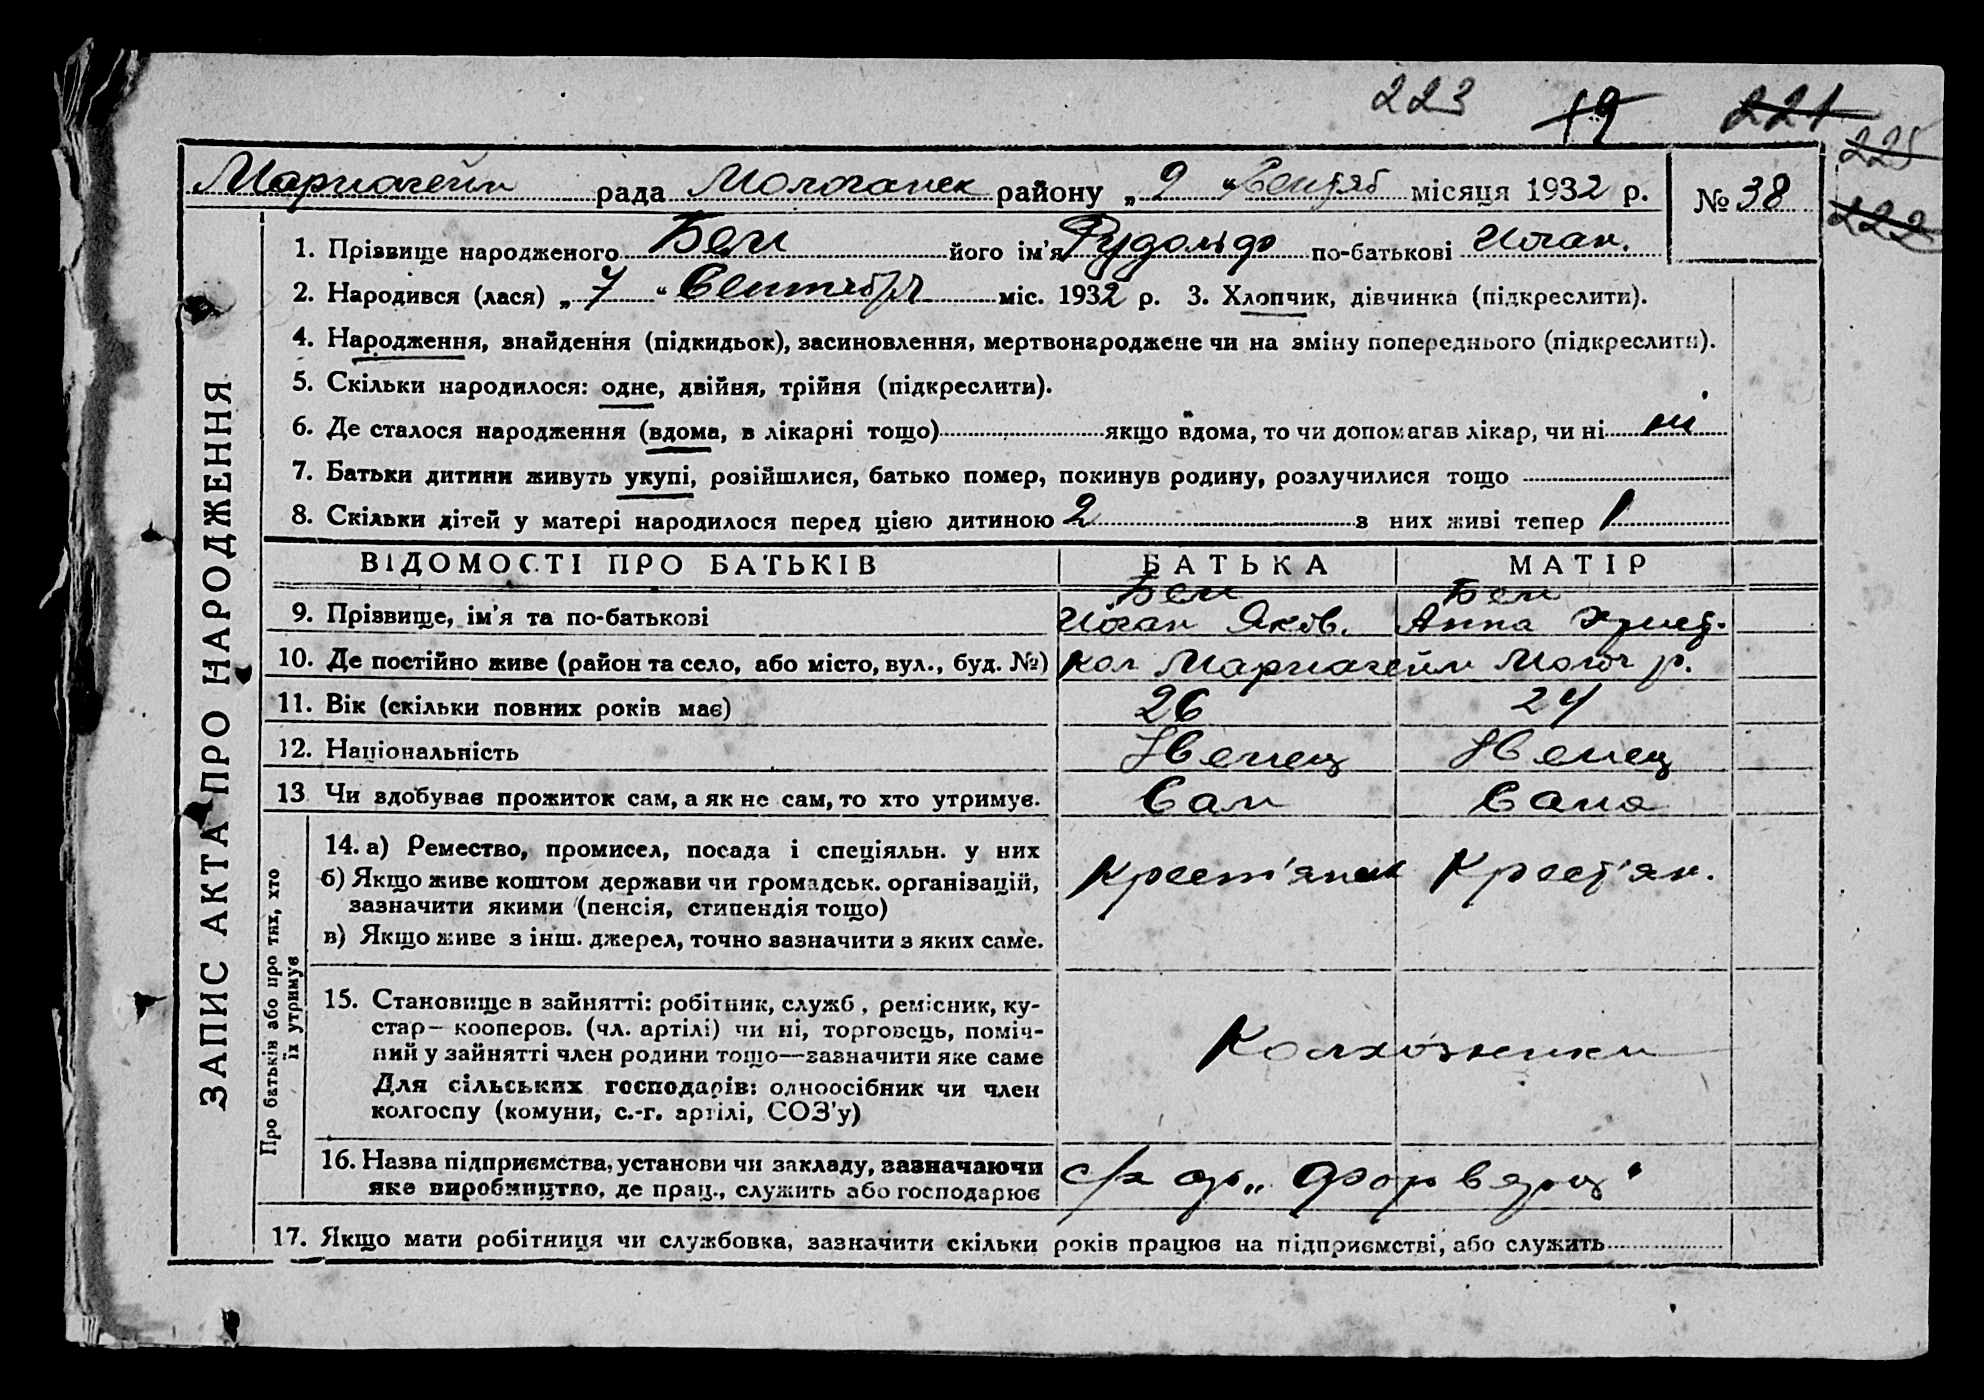 223 19 221
225
222
Мариагейм рада Молочанск району „9“ Сентяб місяця 1932 р. № 38
ЗАПИС АКТА ПРО НАРОДЖЕННЯ
1. Прізвище народженого Бем його ім'я Рудольф по-батькові Иоган.
2. Народився (лася) „7“ Сентября міс. 1932 р. 3. Хлопчик, дівчинка (підкреслити).
4. Народження, знайдення (підкидьок), засиновлення, мертвонароджене чи на зміну попереднього (підкреслити).
5. Скільки народилося: одне, двійня, трійня (підкреслити).
6. Де сталося народження (вдома, в лікарні тощо) якщо вдома, то чи допомагав лікар, чи ні ні
7. Батьки дитини живуть укупі, розійшлися, батько помер, покинув родину, розлучилися тощо
8. Скільки дітей у матері народилося перед цією дитиною 2 з них живі тепер 1
ВІДОМОСТІ ПРО БАТЬКІВ БАТЬКА МАТІР
Бем Бем
9. Прізвище, ім'я та по-батькові Иоган Яков. Анна Христ.
10. Де постійно живе (район та село, або місто, вул., буд. №) кол Мариагейм Молоч р.
11. Вік (скільки повних років має) 26 24
12. Національність Немец Немец
13 Чи здобуває прожиток сам, а як не сам, то хто утримує. Сам Сама
Про батьків або про тих, хто
їх утримує
14. а) Ремество, промисел, посада і спеціяльн. у них
б) Якщо живе коштом держави чи громадськ. організацій, Крест'янин Крест'ян.
зазначити якими (пенсія, стипендія тощо)
в) Якщо живе з інш. джерел, точно зазначити з яких саме.
15. Становище в зайнятті: робітник, служб, ремісник, ку-
стар—кооперов. (чл. артілі) чи ні, торговець, поміч-
ний у зайнятті член родини тощо—зазначити яке саме Колхозники
Для сільських господарів: одноосібник чи член
колгоспу (комуни, с.-г. артілі, СОЗ'у)
16. Назва підприємства, установи чи закладу, зазначаючи
яке виробництво, де прац., служить або господарює с/х ар „Форвертс“
17. Якщо мати робітниця чи службовка, зазначити скільки років працює на підприємстві, або служить